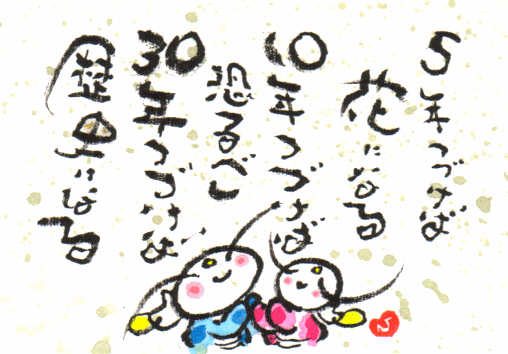 5年つづけば
花になる
10年つづけば
恐るべし
30年つづけば
歴史になる